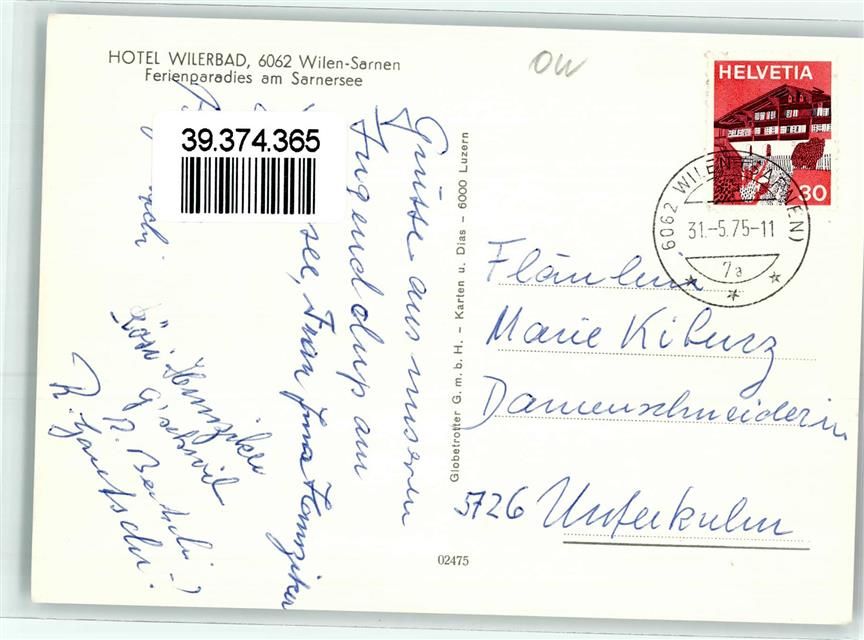 HOTEL WILERBAD, 6062 Wilen-Sarnen
Ferienparadies am Sarnersee
OW
HELVETIA
30
6062 WILEN (SARNEN)
31.-5.75-11
7a
39.374.365
Grüsse aus unserem
Jugendclup am
see, Frau Hunziker
Rösi Hunziker
R. Bertschi
R. Gautschi.
Globetrotter G.m.b.H. – Karten u. Dias – 6000 Luzern
Fräulein
Marie Kiburz
Damenschneiderin
5726 Unterkulm
02475